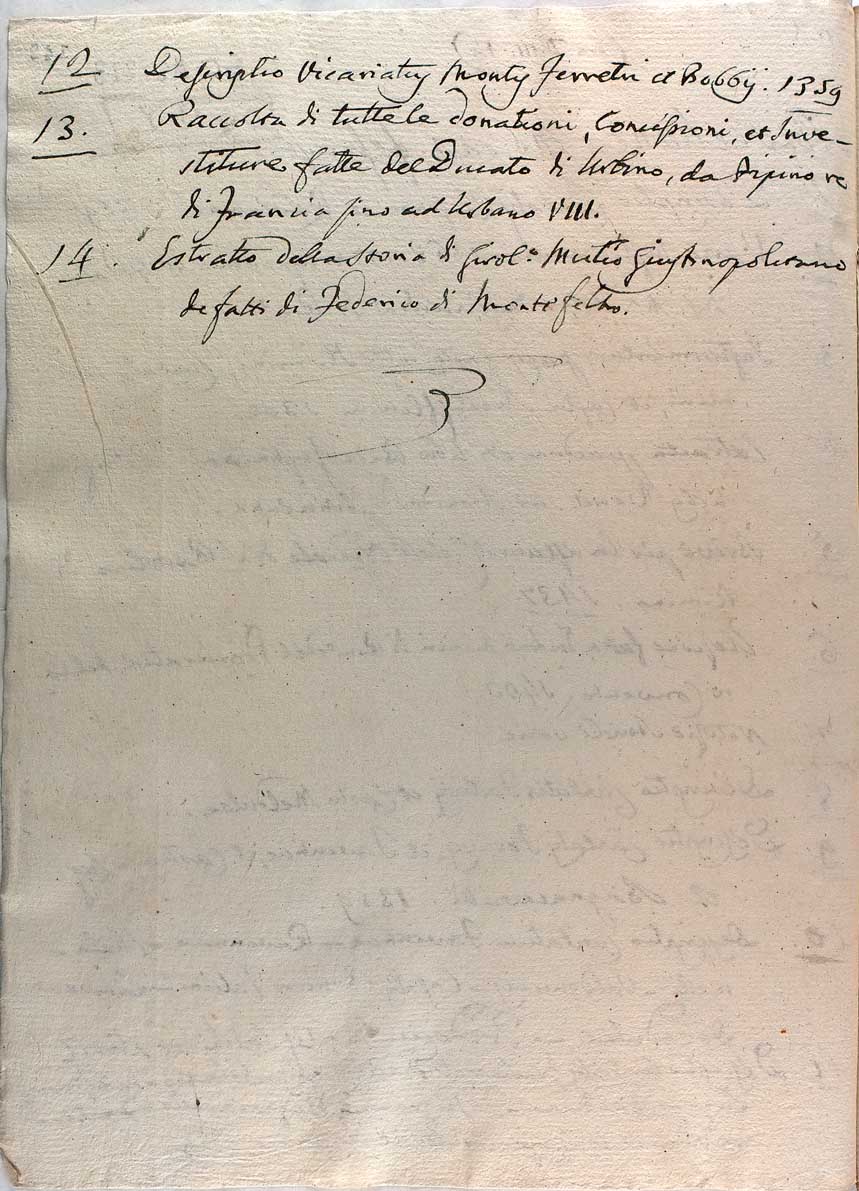 12 Descriptio Vicariatus Montis Ferretri et Bobbij. 1359
13. Raccolta di tutte le donationi, Concessioni, et Inve-
stiture fatte del Ducato di Urbino, da Pipino re
di Francia sino ad Urbano VIII.
14. Estratto della storia di Girol.º Mutio Giustinopolitano
de fatti di Federico di Montefeltro.